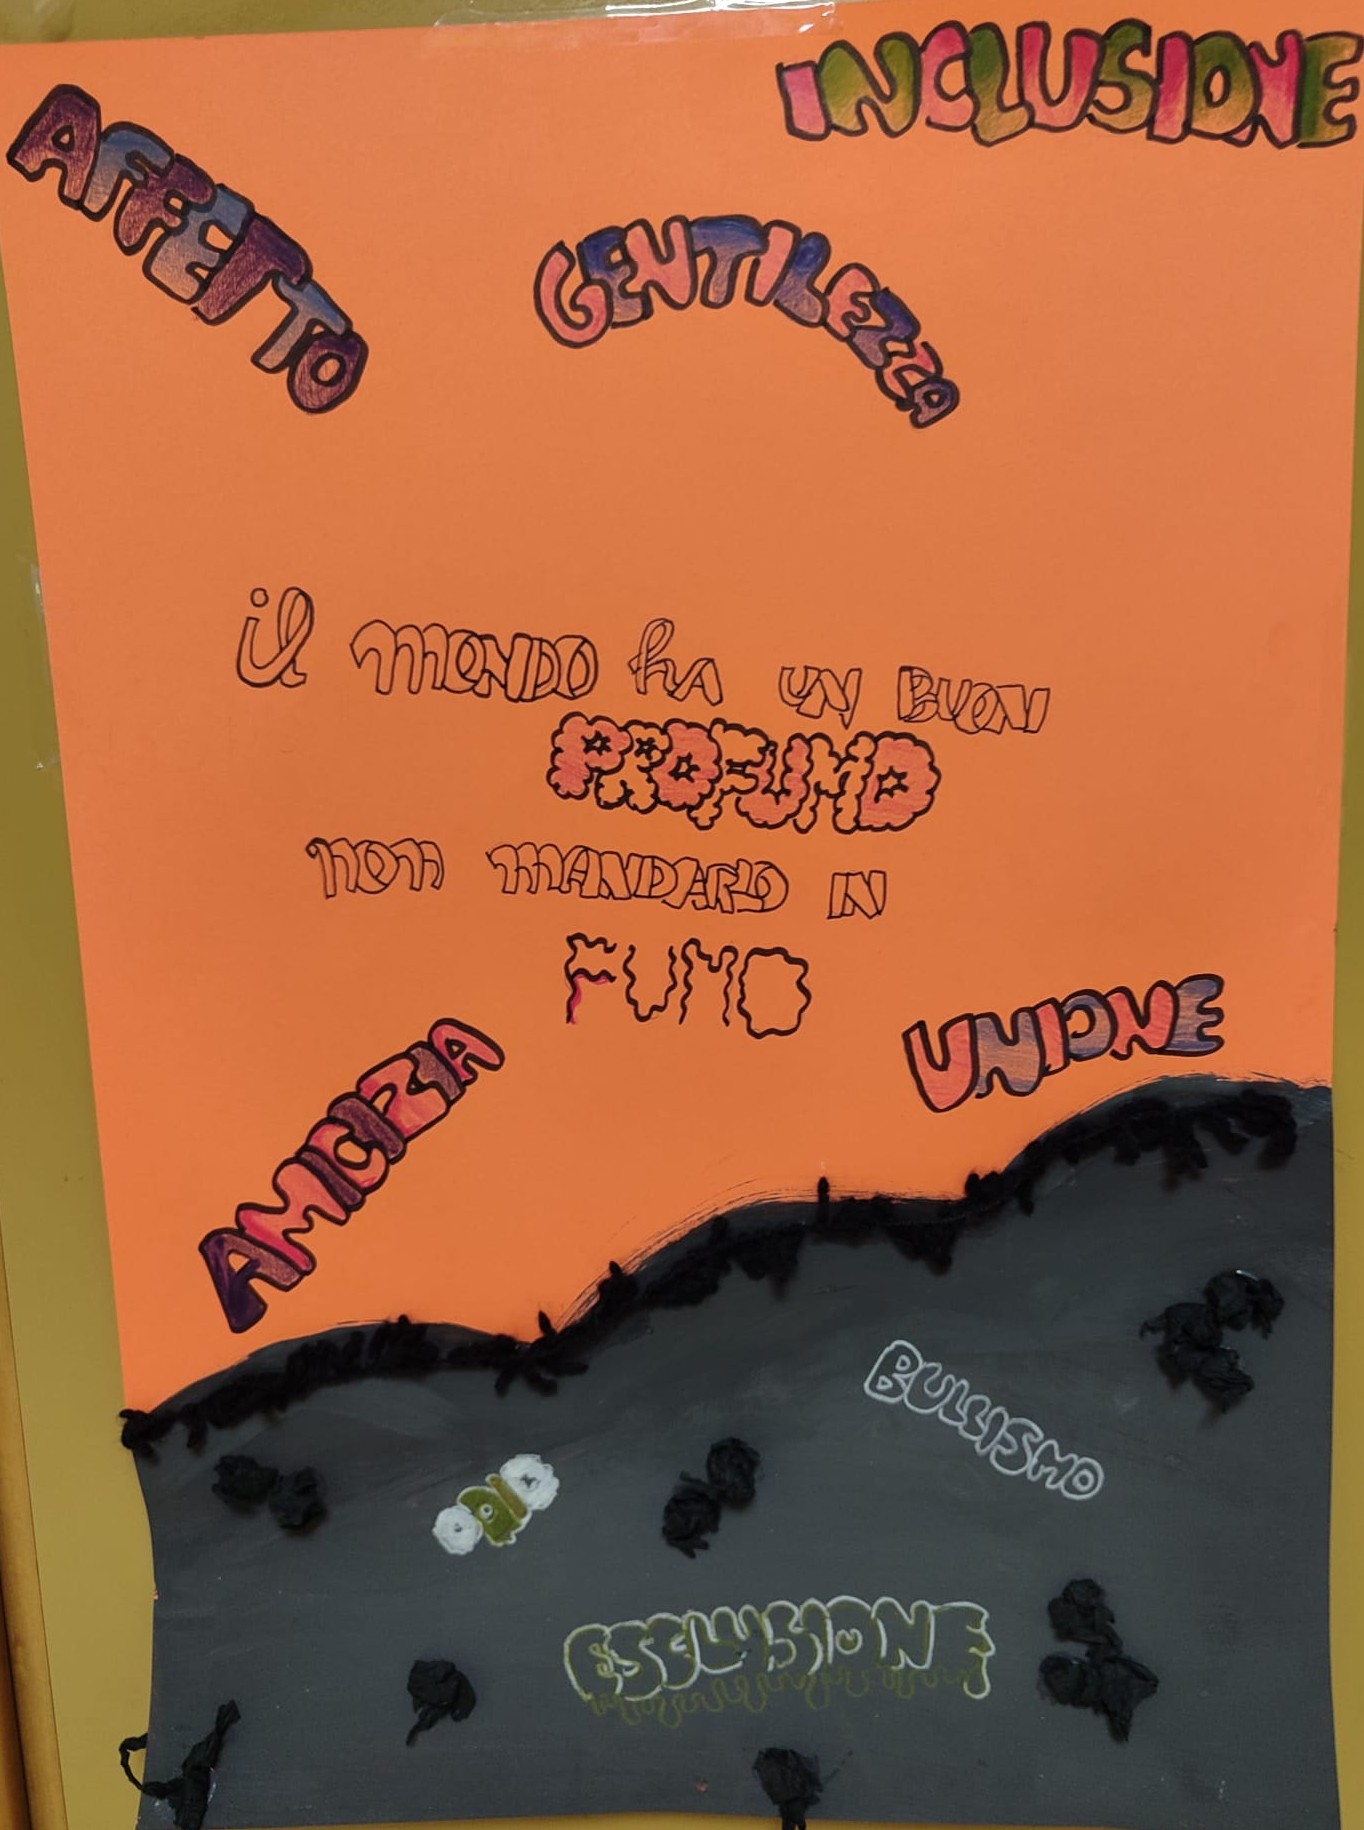 INCLUSIONE
AFFETTO
GENTILEZZA
il MONDO ha UN BUON
PROFUMO
non MANDARLO IN
FUMO
UNIONE
AMICIZIA
BULLISMO
ODIO
ESCLUSIONE